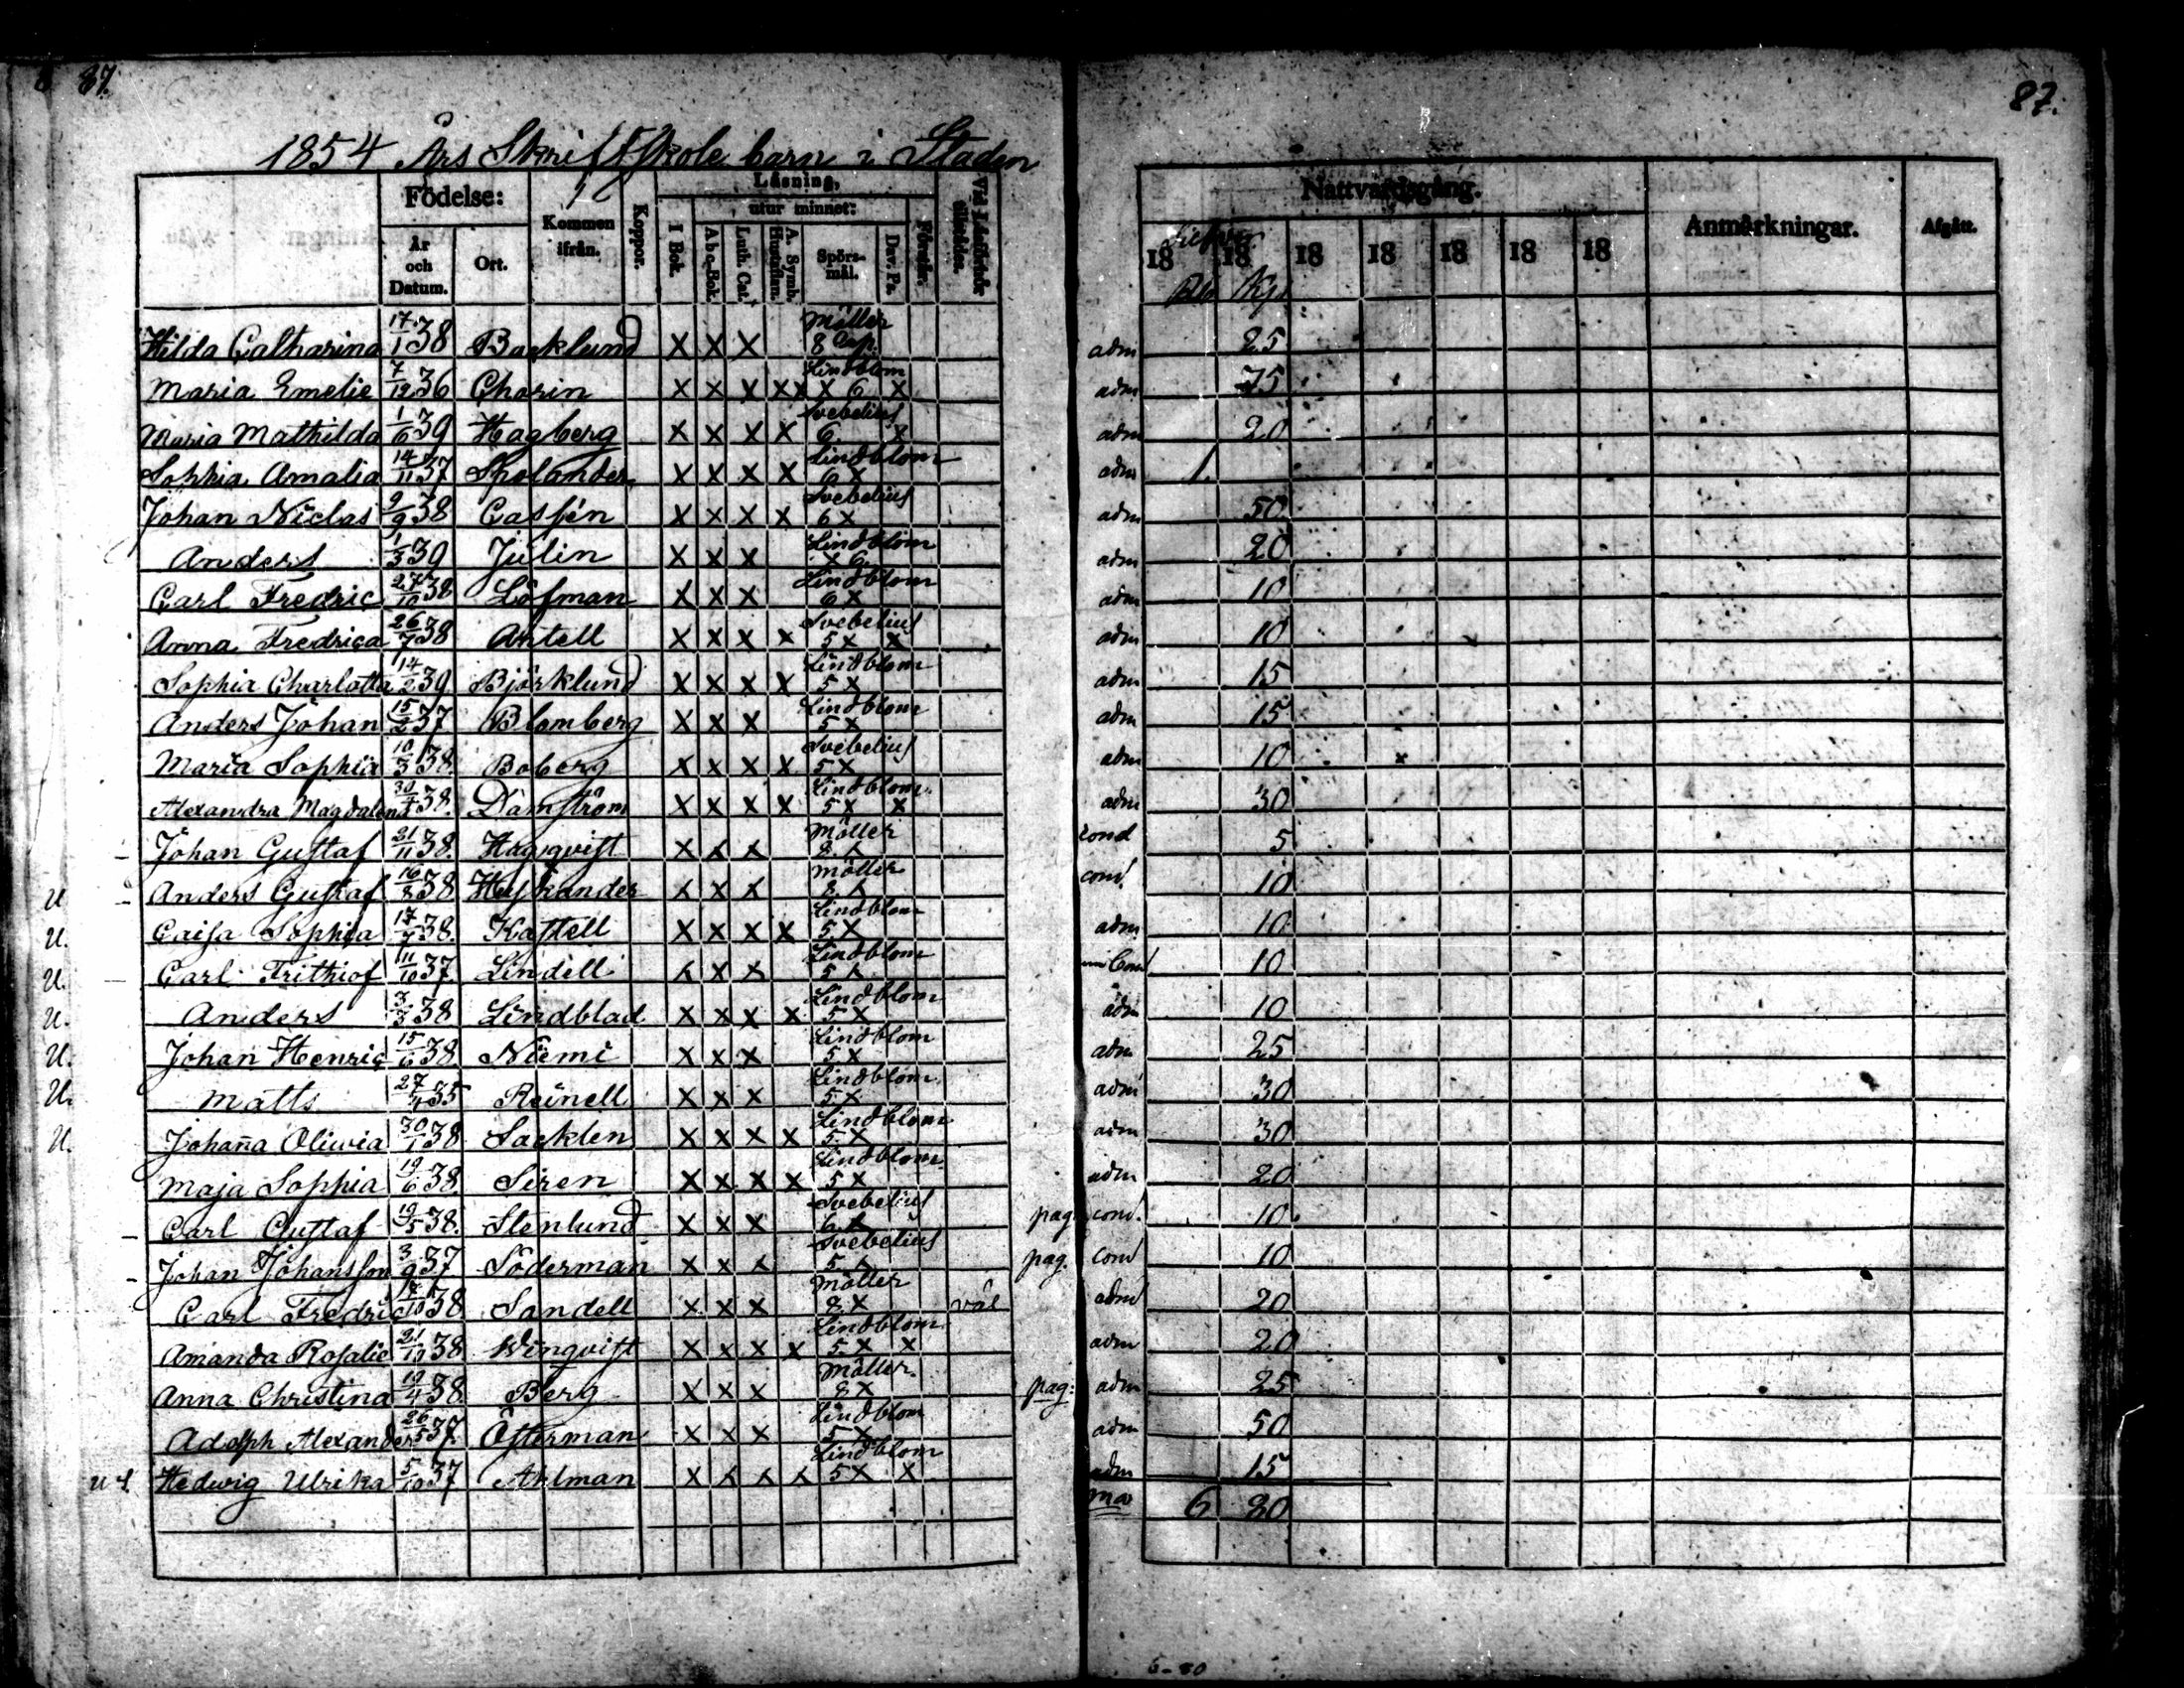 87. 87.
1854 Års Skriftskole barn i Staden
Födelse: Kommen ifrån. Koppor. Läsning, utur minnet: Vid Läsförhör tilldeldes. Nattvardsgång. Anmärkningar. Afgått.
År och Datum. Ort. I Bok. Abc-Bok. Luth. Cat. A. Symb. Hustaflan. Spörsmål. Dav. Ps. Förstår. 18 18 18 18 18 18 18
Kp.
Hilda Catharina 17/1 38 Backlund x x x Möller 8 Cap. adm 25
Maria Emelie 7/12 36 Chorin x x x x x Lindblom x 6 x adm 75
Maria Mathilda 1/6 39 Hagberg x x x x Svebelius 6 x adm 20
Sophia Amalia 14/11 37 Spolander x x x x Lindblom 6 x adm 1.
Johan Niclas 9/9 38 Cassén x x x x Svebelius 6 x adm 50
Anders 1/3 39 Julin x x x Lindblom x 6 adm 20
Carl Fredric 27/10 38 Löfman x x x Lindblom 6 x adm 10
Anna Fredrica 26/7 38 Antell x x x x Svebelius 5 x x adm 10
Sophia Charlotta 14/2 39 Björklund x x x x Lindblom 5 x adm 15
Anders Johan 15/2 37 Blomberg x x x Lindblom 5 x adm 15
Maria Sophia 10/3 38. Boberg x x x x Svebelius 5 x adm 10
Alexandra Magdalena 30/4 38. Damström x x x x Lindblom 5 x x adm 30
Johan Gustaf 21/11 38. Hagqvist x x x Möller 8. x cond 5
U Anders Gustaf 16/8 38 Hesslander x x x Möller 8 x cond 10
U. Caisa Sophia 17/7 38. Kastell x x x x Lindblom 5 x adm 10
U. Carl Frithiof 11/10 37. Lindell x x x Lindblom 5 x Cond 10
U. Anders 3/3 38 Lindblad x x x x Lindblom 5 x adm 10
U. Johan Henric 15/6 38 Niemi x x x Lindblom 5 x adm 25
U. Matts 27/4 35 Reinell x x x Lindblom 5 x adm 30
U. Johaña Oliwia 30/1 38 Sacklen x x x x Lindblom 5 x adm 30
Maja Sophia 19/6 38. Siren x x x x Lindblom 5 x adm 20
Carl Gustaf 19/5 38. Stenlund x x x Svebelius 6. x pag. cond. 10
Johan Johansson 3/9 37 Söderman x x x Svebelius 5 x pag. cond 10
Carl Fredric 17/10 38 Sandell x x x Möller 8. x väl adm 20
Amanda Rosalie 21/10 38 Winqvist x x x x Lindblom 5 x x adm 20
Anna Christina 19/4 38 Berg x x x Möller 8 x pag: adm 25
Adolph Alexander 26/5 37. Österman x x x Lindblom 5 x adm 50
Hedwig Ulrika 5/10 37 Ahlman x x x x Lindblom 5 x x adm 15
6 80
6-80